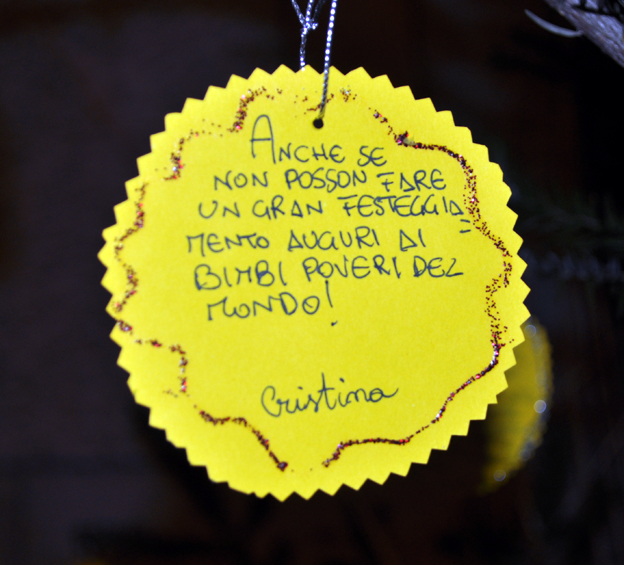 ANCHE SE
NON POSSON FARE
UN GRAN FESTEGGIA=
MENTO AUGURI AI
BIMBI POVERI DEL
MONDO!
Cristina